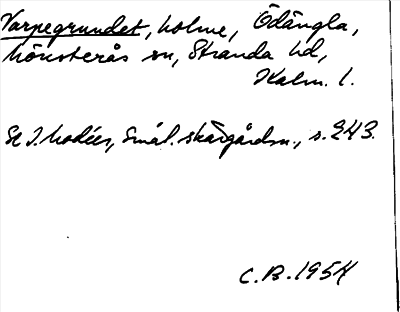 Varpegrundet, holme, Ödängla,
Mönsterås sn, Stranda hd,
Kalm. l.
Se J. Modéer, Smål. skärgårdsn., s. 243.
C. B. 1954